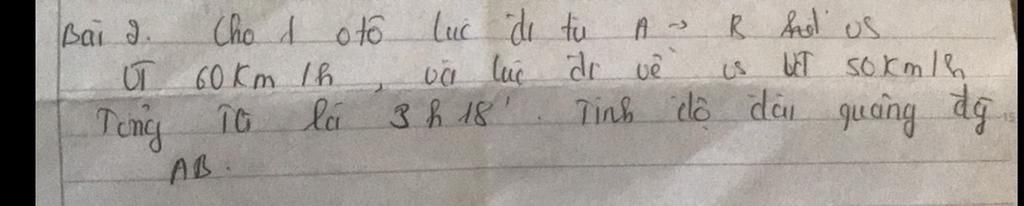 Bài 2. Cho 1 ôtô lúc đi từ A → B
VT 60 Km /h, và lúc đi về VT 50 Km/h
Tổng TG là 3 h 18'. Tính độ dài quãng đg
AB.